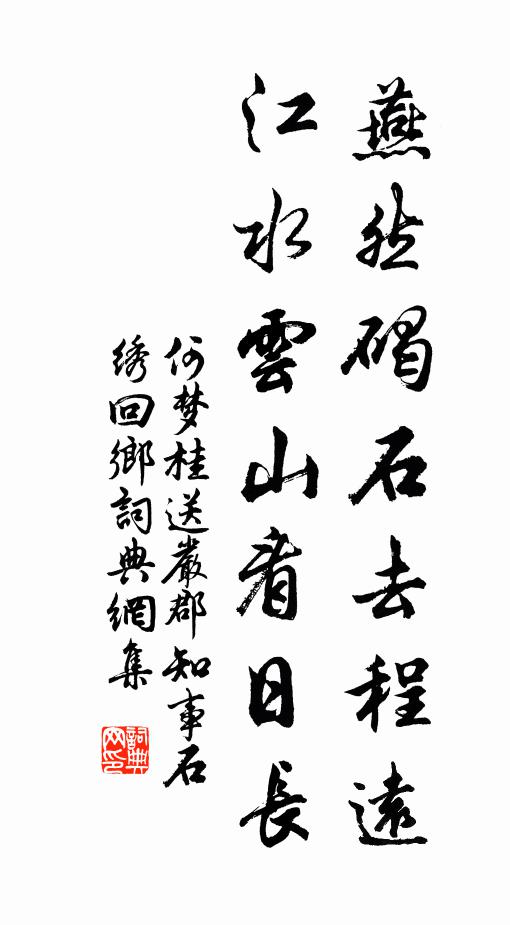 燕然碣石去程遠
江水雲山看日長
何梦桂送嚴郡知事石
綉回鄉詞典網集
詞典网印